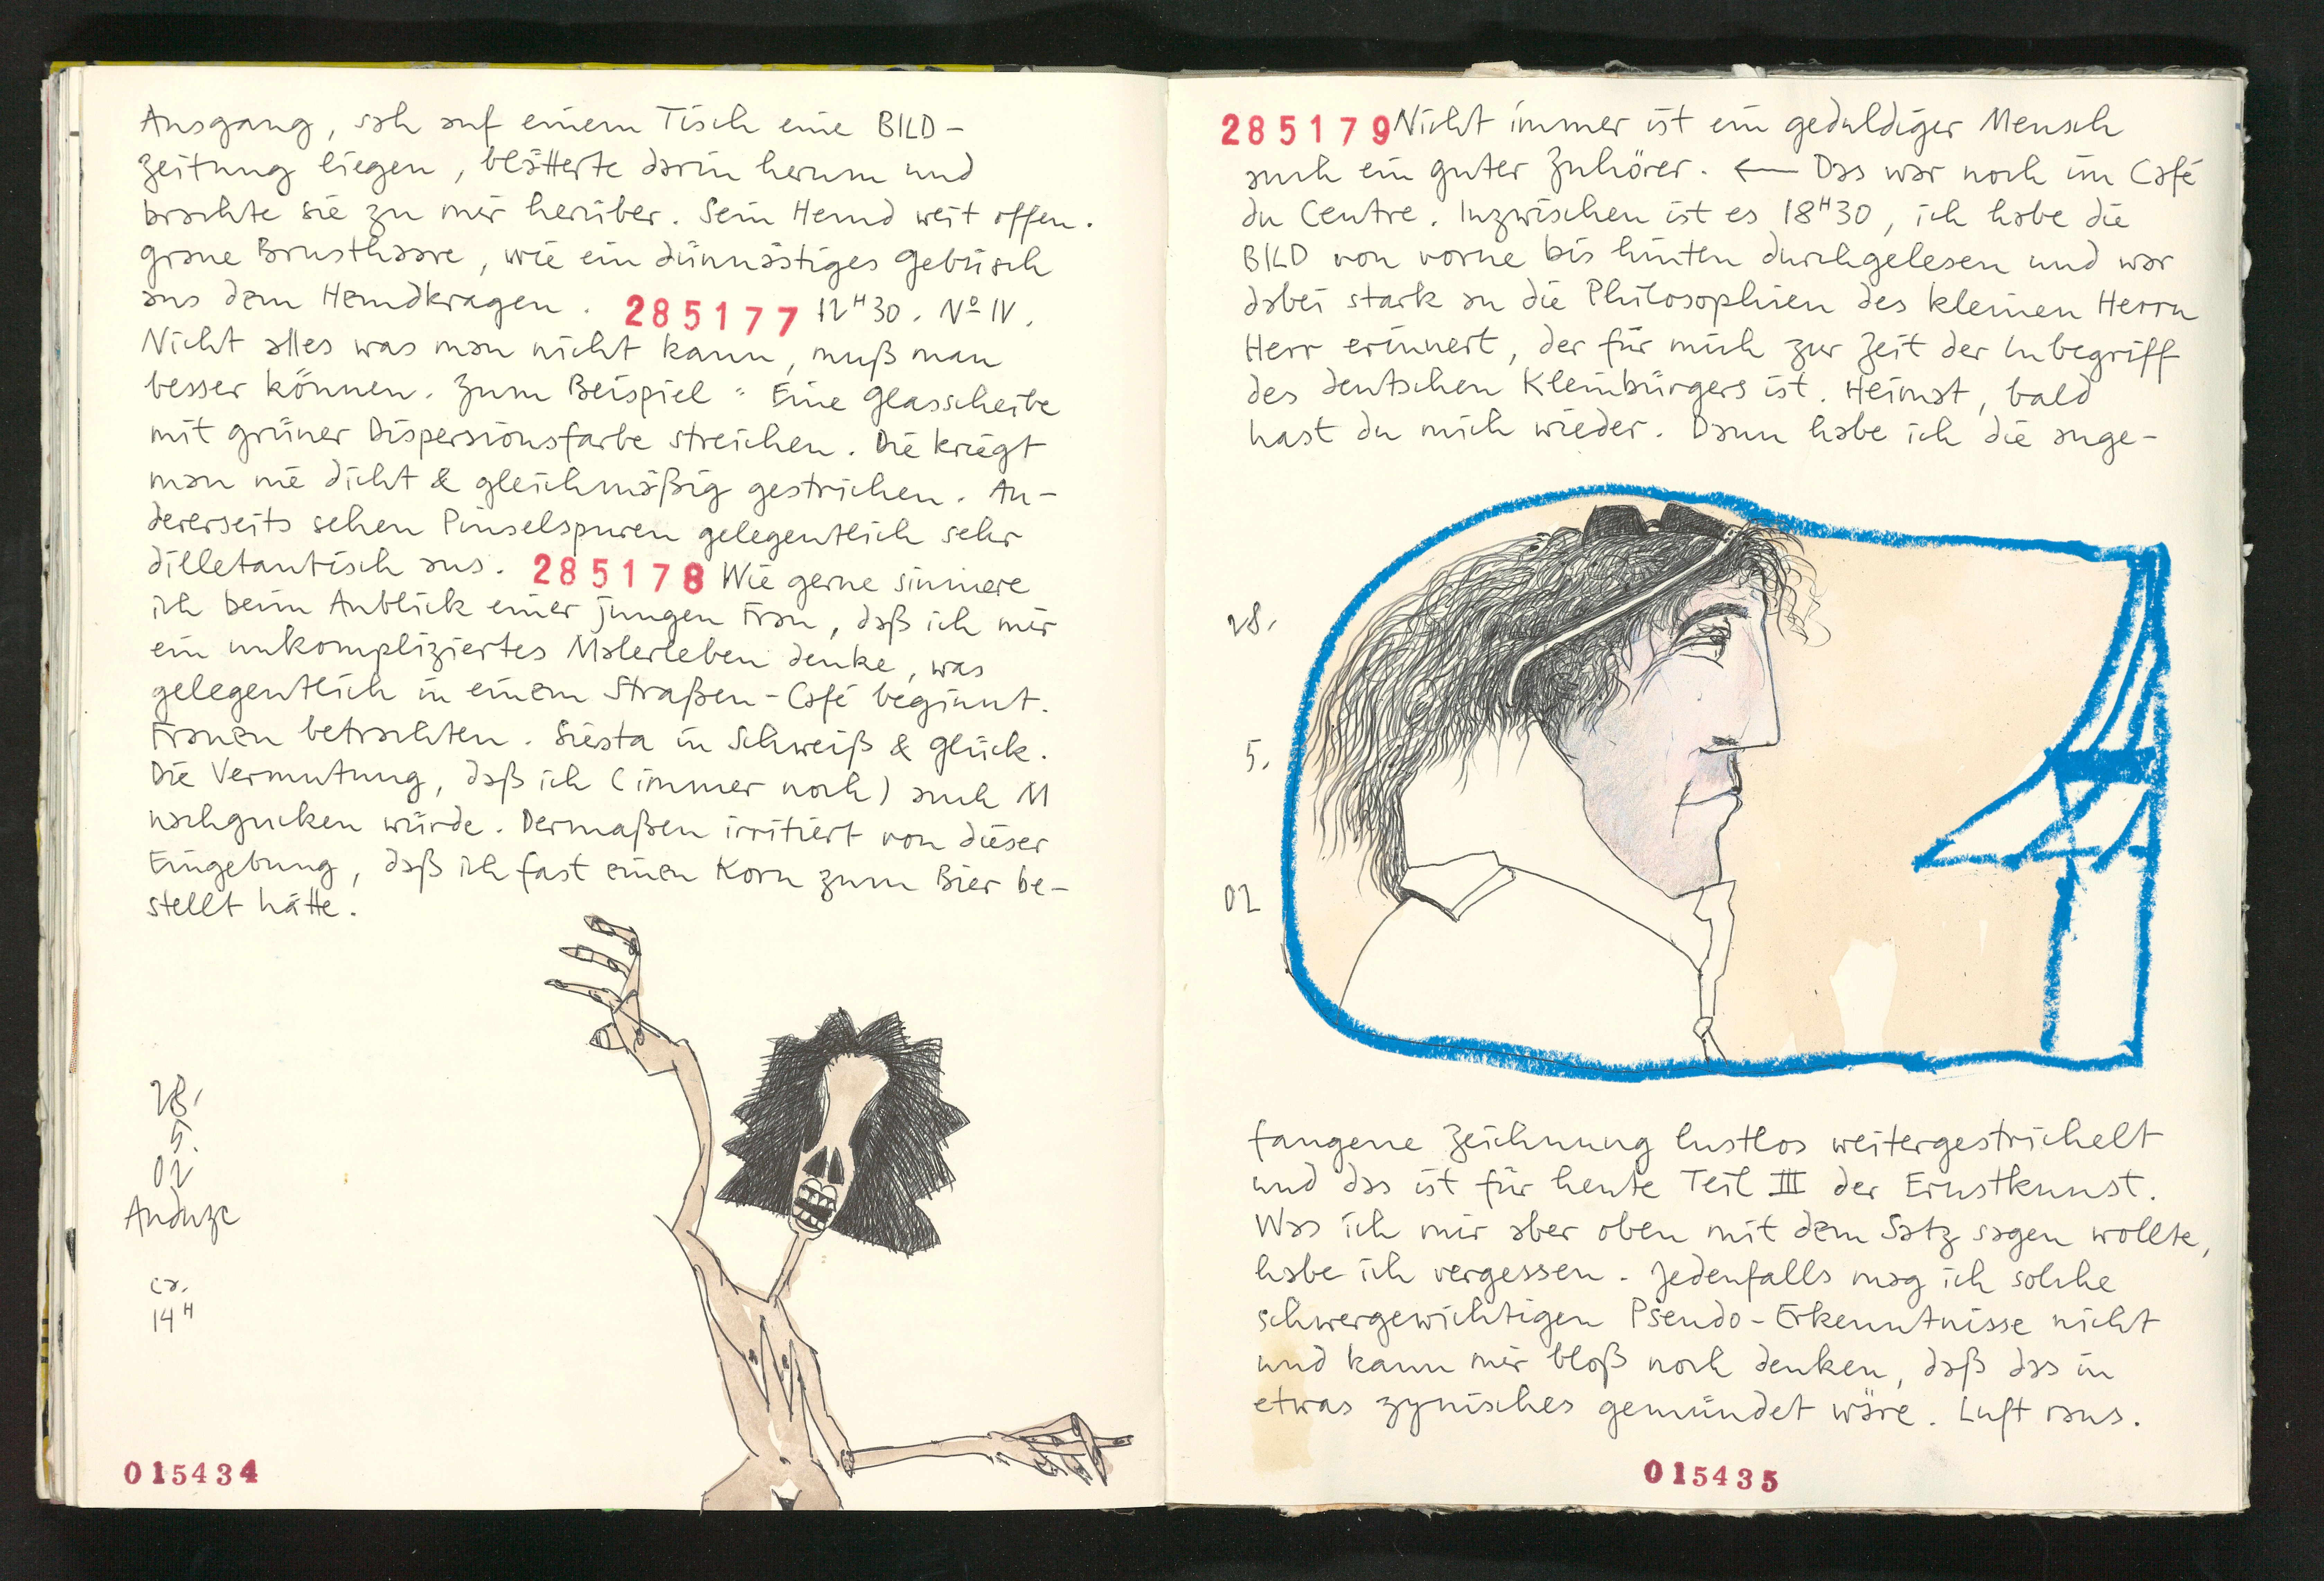 Ausgang, sah auf einem Tisch eine BILD-
zeitung liegen, blätterte darin herum und
brachte sie zu mir herüber. Sein Hemd weit offen.
graue Brusthaare, wie ein dünnästiges Gebüsch
aus dem Hemdkragen. 285177 12H30. No IV.
Nicht alles was man nicht kann, muß man
besser können. Zum Beispiel: Eine Glasscheibe
mit grüner Dispersionsfarbe streichen. Die kriegt
man nie dicht & gleichmäßig gestrichen. An-
dererseits sehen Pinselspuren gelegentlich sehr
dilletantisch aus. 285178 Wie gerne sinniere
ich beim Anblick einer jungen Frau, daß ich mir
ein unkompliziertes Malerleben denke, was
gelegentlich in einem Straßen-Café beginnt.
Frauen betrachten. Siesta in Schweiß & Glück.
Die Vermutung, daß ich (immer noch) auch M
nachgucken würde. Dermaßen irritiert von dieser
Eingebung, daß ich fast einen Korn zum Bier be-
stellt hätte.
28.
5.
02
Anduze
ca.
14H
015434
285179 Nicht immer ist ein geduldiger Mensch
auch ein guter Zuhörer. ← Das war noch im Café
du Centre. Inzwischen ist es 18H30, ich habe die
BILD von vorne bis hinten durchgelesen und war
dabei stark an die Philosophien des kleinen Herrn
Herr erinnert, der für mich zur Zeit der Inbegriff
des deutschen Kleinbürgers ist. Heimat, bald
hast du mich wieder. Dann habe ich die ange-
28.
5.
02
fangene Zeichnung lustlos weitergestrichelt
und das ist für heute Teil III der Ernstkunst.
Was ich mir aber oben mit dem Satz sagen wollte,
habe ich vergessen. Jedenfalls mag ich solche
schwergewichtigen Pseudo-Erkenntnisse nicht
und kann mir bloß noch denken, daß das in
etwas zynisches gemündet wäre. Luft raus.
015435